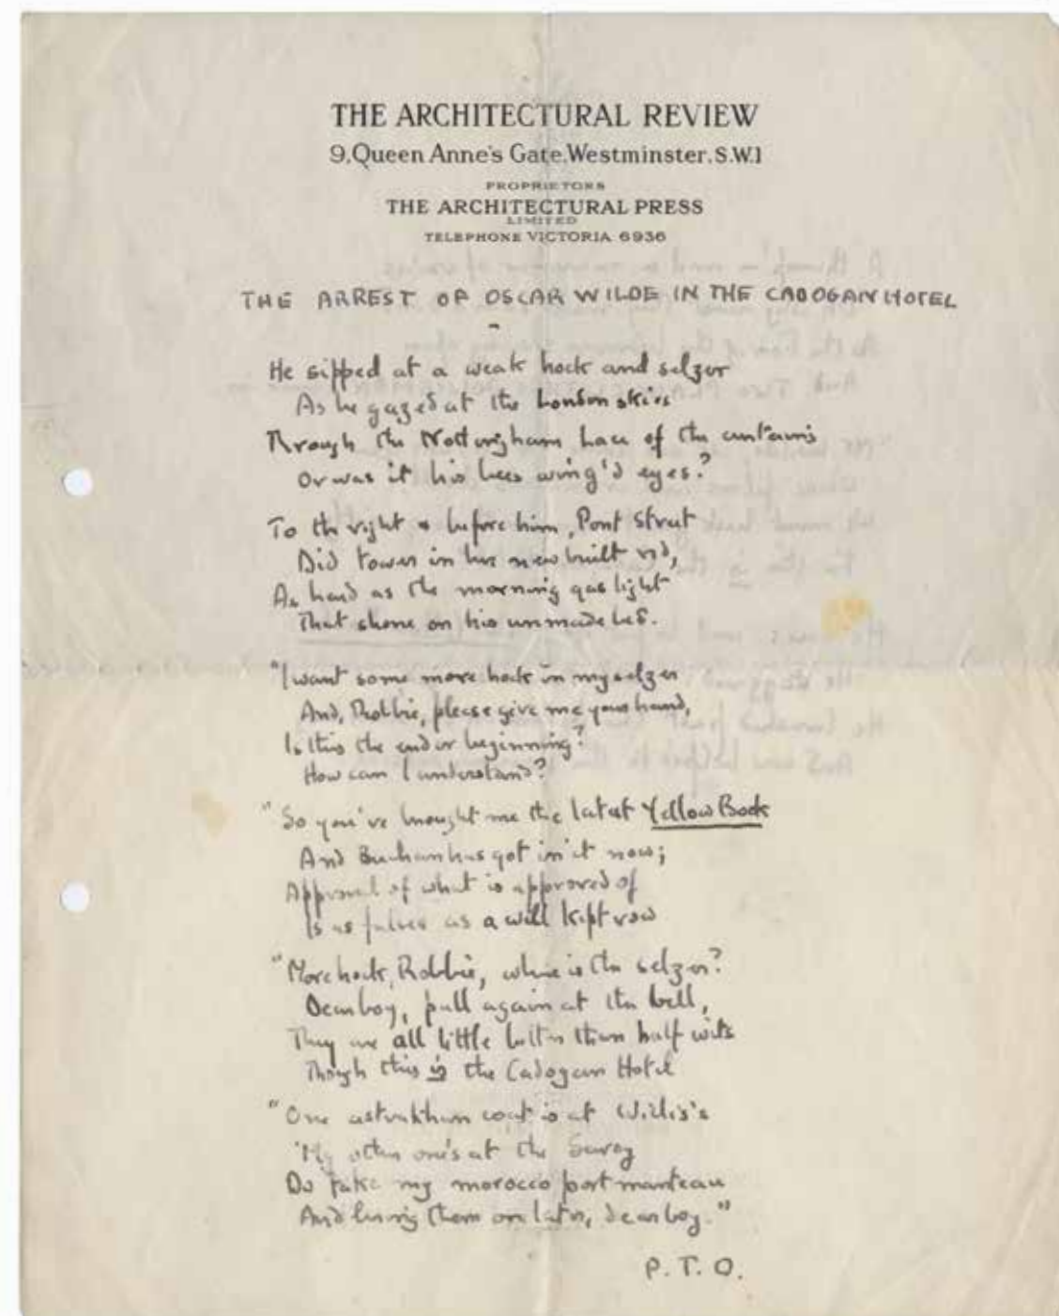 THE ARCHITECTURAL REVIEW
9, Queen Anne's Gate, Westminster, S.W.1
PROPRIETORS
THE ARCHITECTURAL PRESS
LIMITED
TELEPHONE VICTORIA 6936
THE ARREST OF OSCAR WILDE IN THE CADOGAN HOTEL
He sipped at a weak hock and selzer
As he gazed at the London skies
Through the Nottingham Lace of the curtains
Or was it his bees wing'd eyes?
To the right & before him, Pont Street
Did tower in her new built red,
As hard as the morning gas light
That shone on his unmade bed.
"I want some more hock in my selzer
And, Robbie, please give me your hand,
Is this the end or beginning?
How can I understand?
"So you've brought me the latest Yellow Book
And Buchan has got in it now;
Approval of what is approved of
Is as false as a well kept vow
"More hock, Robbie, where is the selzer?
Dear boy, pull again at the bell,
They are all little better than half wits
Though this is the Cadogan Hotel
"One astrakhan coat is at Willis's
'My other one's at the Savoy
Do take my morocco portmanteau
And bring them on later, dear boy."
P.T.O.